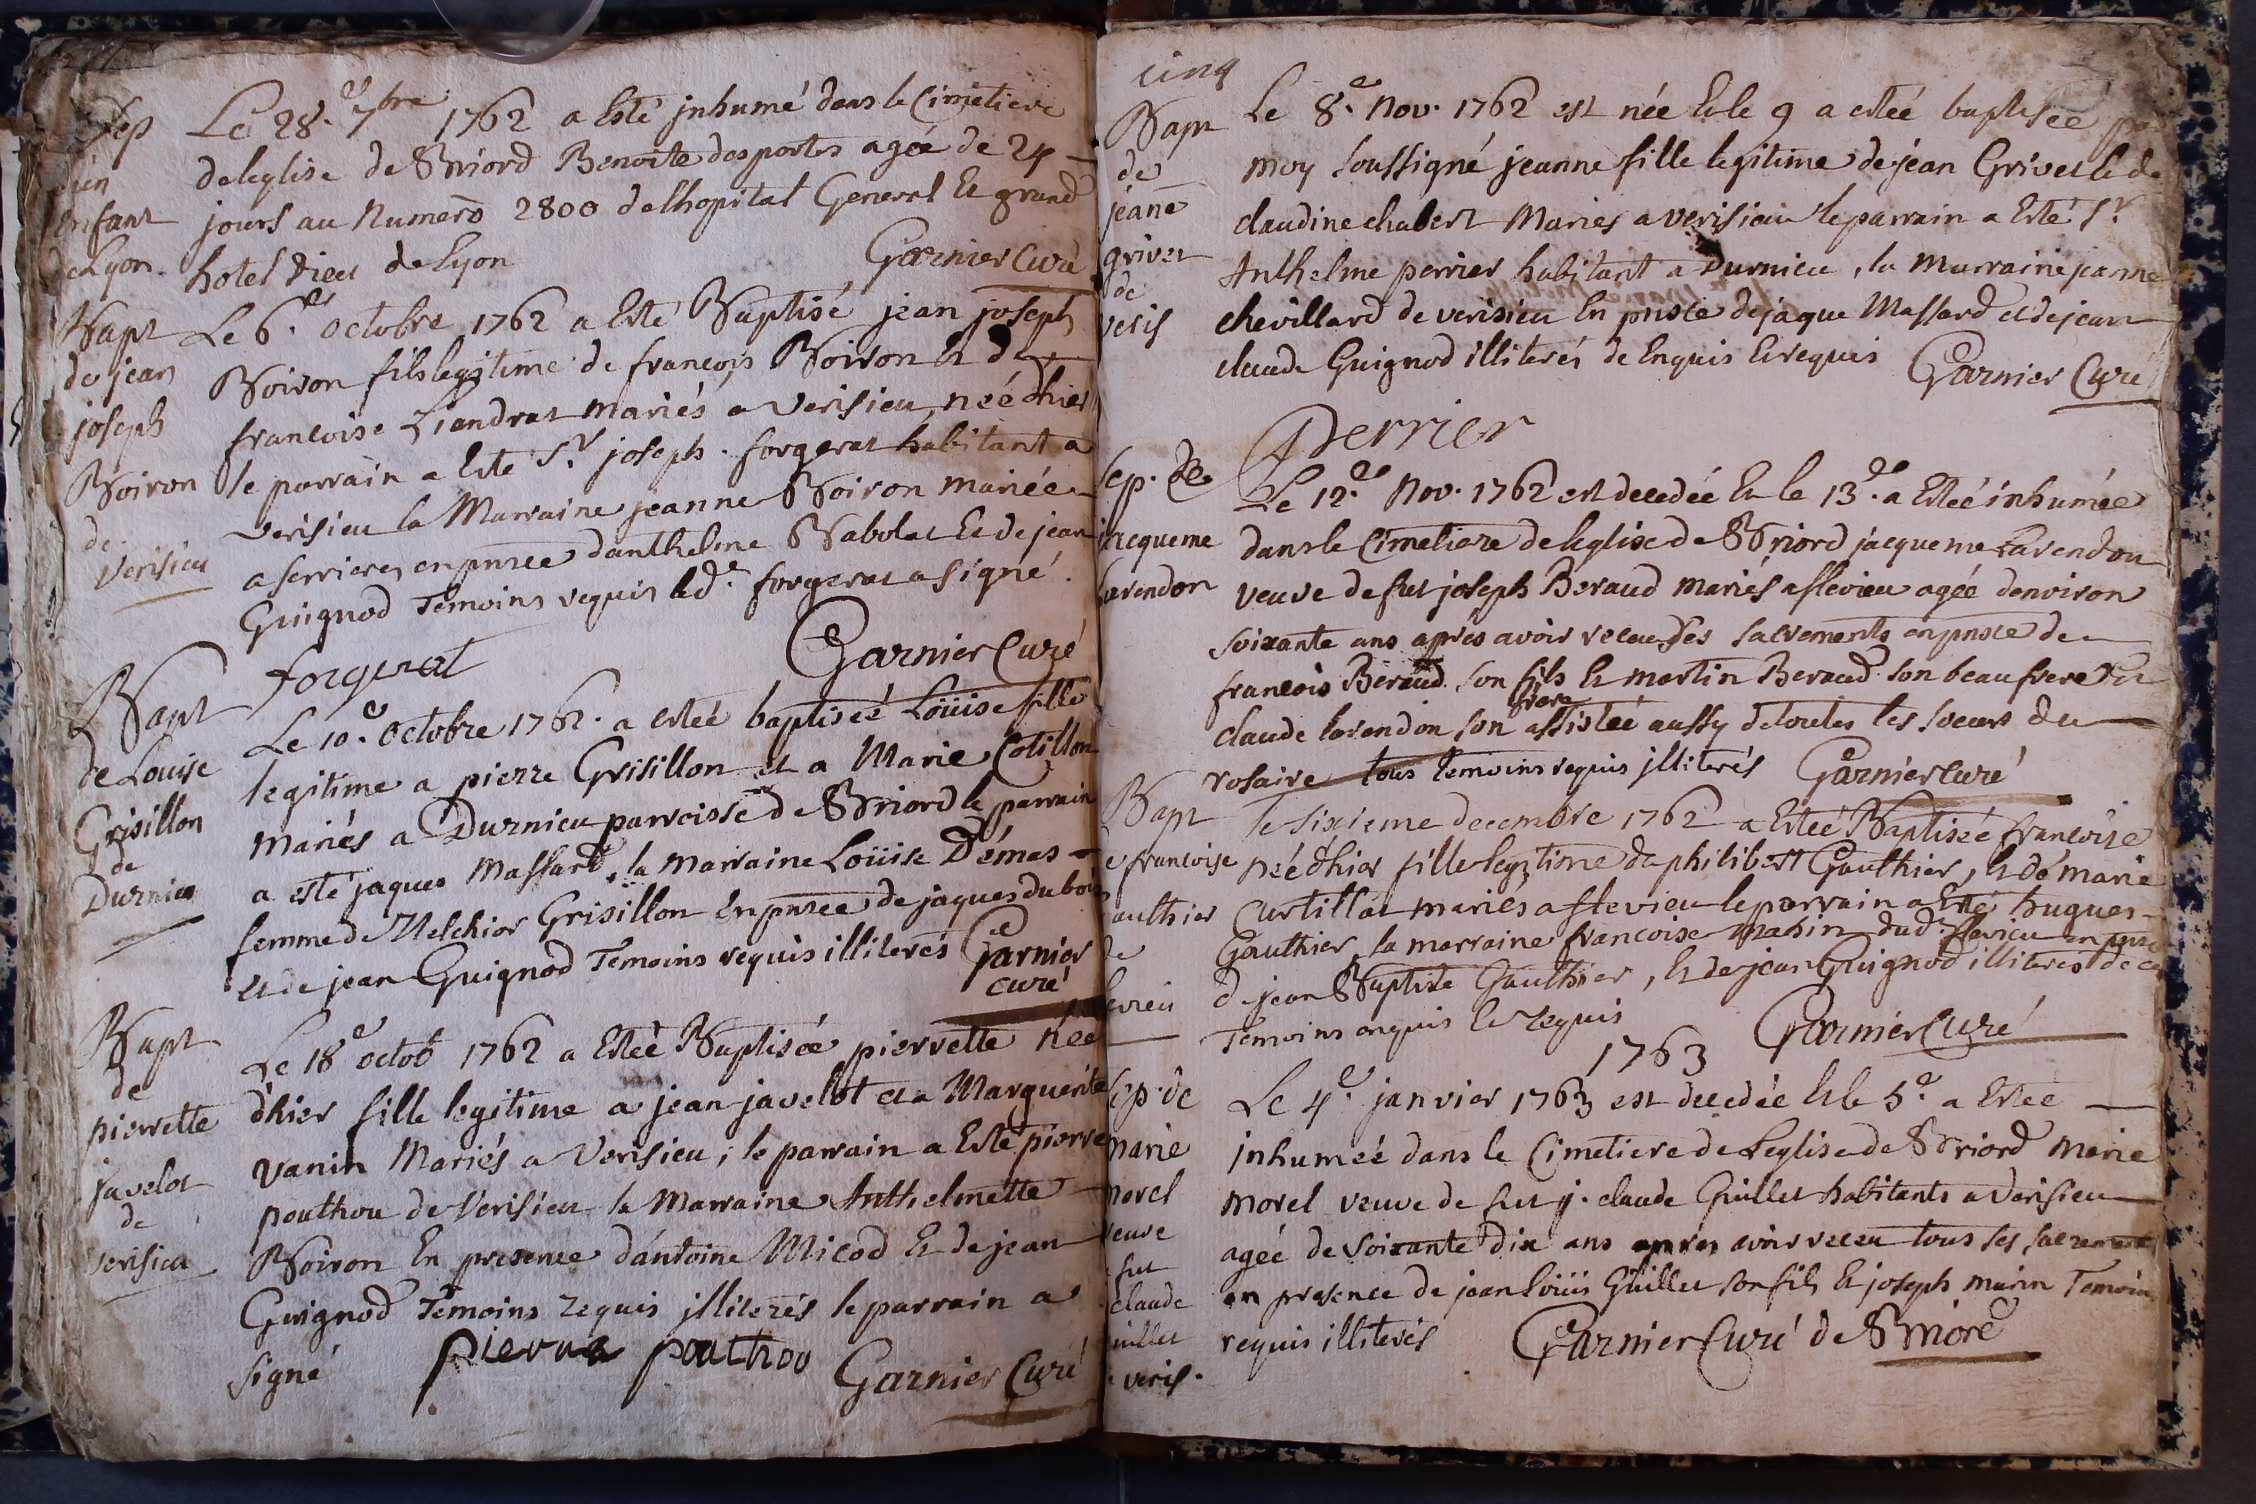 Sep
d'un
enfant
de Lyon.
Le 28.e 7bre 1762 a Esté jnhumé dans le Cimetiere
deleglise de Briord Benoite desportes agée de 24
jours au Numero 2800 delhopital General Et grand
hotel Dieu de Lyon
Garnier Curé
Bapt
de jean
joseph
Boiron
de
Verisieu
Le 6.e octobre 1762 a Esté Baptisé jean joseph
Boiron fils legitime de françois Boiron Et de
francoise Liandrat mariés a Verisieu, néé d'hier
le parrain a Esté Sr joseph forgerat habitant a
verisieu la Marraine jeanne Boiron mariée
a serrieres en pnsce danthelme Babolat Et de jean
Guignod Temoins requis led.t forgerat a signé.
forgerat
Garnier Curé
Bapt
de Louise
Grisillon
de
Durnieu
Le 10.e Octobre 1762. a esteé baptiseé Loüise fille
legitime a pierre Grisillon et a Marie Cotillon
mariés a Durnieu parroisse de Briord le parrain
a esté jaques Massard, la marraine Loüise Démas
femme de Melchior Grisillon En pnsce de jaques dubois
et de jean Guignod Temoins requis illiterés
Garnier
curé
Bapt
de
pierrette
javelot
de
verisieu
Le 18e octob 1762 a Esteé Baptisée pierrette née
d'hier fille legitime a jean javelot et a Marguerite
vanin Mariés a Verisieu; le parrain a Esté pierre
pouthou de Verisieu la Marraine Anthelmette
Boiron En presence d'antoine Micod Et de jean
Guignod Temoins requis jlliterés le parrain a
signé
pierre pouthou
Garnier Curé
cinq
Bapt
de
jeane
grivet
de
veris
Le 8.e Nov. 1762 est née Et le 9 a esteé baptisée par
moy soussigné jeanne fille legitime de jean Grivet Et de
claudine chabert Mariés a verisieu le parrain a Esté Sr
Anthelme perrier habitant a Durnieu, la marraine jeanne
chevillard de verisieu En pnsce de jaque Massard et de jean
claude Guignod illiterés de Enquis Et requis
Garnier Curé
Perrier
Sep. de
jacqueme
Larendon
Le 12.e Nov. 1762 est decedée Et le 13.e a Esteé inhumée
dans le Cimetiere de leglise de Briord jacqueme Larendon
veuve de fut joseph Beraud mariés a flevieu agée denviron
soixante ans aprés avoir receu des sacrements en pnsce de
francois Beraud son fils Et martin Beraud son beau frere Et
claude larendon son frere assistée aussy de toutes les soeurs du
rosaire tous temoins requis jlliterés
Garnier curé
Bapt
de francoise
Gauthier
de
flevieu
Le sixieme decembre 1762 a Esteé Baptiseé francoise
néé d'hier fille legitime de philibert Gauthier, Et de marie
Curtillat mariés a flevieu le parrain a Esté hugues
Gauthier, la marraine francoise mahin dud.t flevieu en pnsce
de jean Baptiste Gauthier, Et de jean Guignod illiterés de ce
Temoins enquis Et requis
Garnier Curé
1763
Sep. de
marie
morel
veuve
fut
claude
guillet
veris.
Le 4.e janvier 1763 est decedée Et le 5.e a Esteé
jnhumeé dans le Cimetiere de Leglise de Briord Marie
morel veuve de fut j. claude Guillet habitants a Verisieu
agée de soixante dix ans aprés avoir receu tous ses sacrements
en presence de jean loüis Guillet son fils Et joseph marin Temoins
requis illiterés
Garnier Curé de Briord